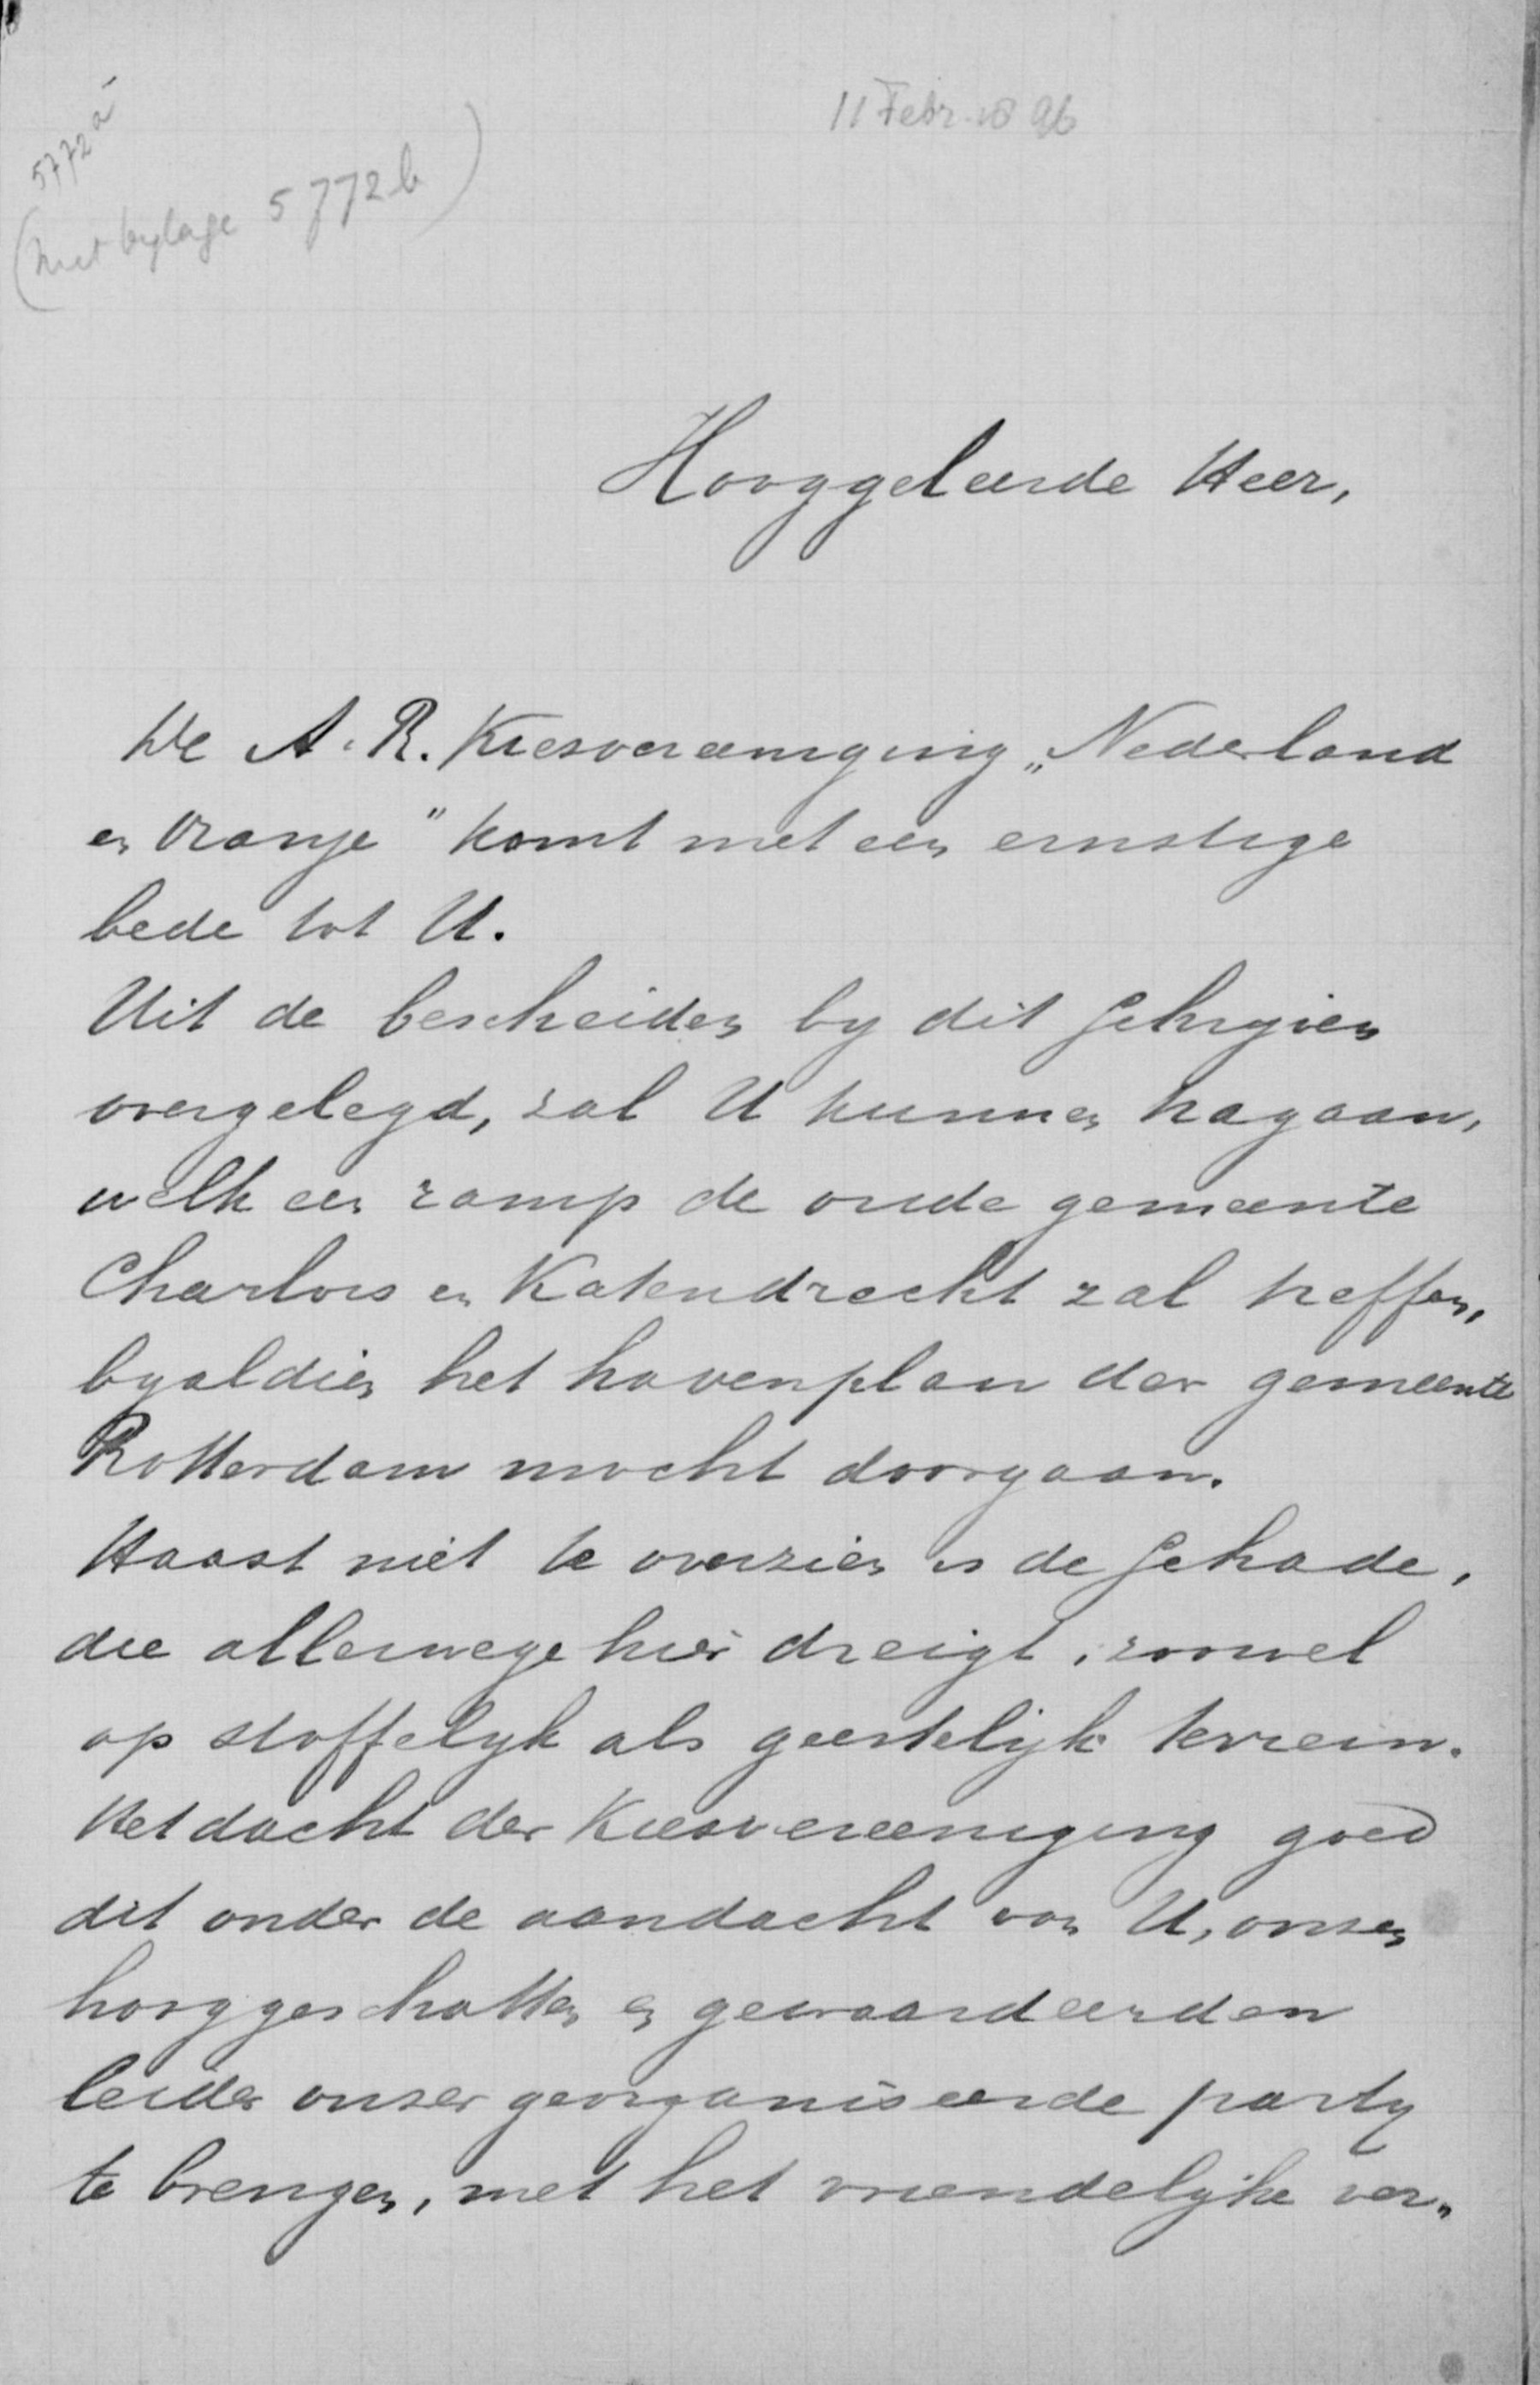 11 Febr. 1896
5772a
(met bylage 5772b)
Hooggeleerde Heer,
De A. R. Kiesvereeniging „Nederland
en Oranje" komt met een ernstige
bede tot U.
Uit de bescheiden by dit schryven
overgelegd, zal U kunnen nagaan,
welk een ramp de oude gemeente
Charlois en Katendrecht zal treffen,
byaldien het havenplan der gemeente
Rotterdam mocht doorgaan.
Haast niet te overzien is de schade,
die allerwege hier dreigt, zoowel
op stoffelyk als geestelijk terrein.
Het dacht der Kiesvereeniging goed
dit onder de aandacht van U, onzen
hooggeschatten en gewaardeerden
leider onzer georganiseerde party
te brengen, met het vriendelijke ver„